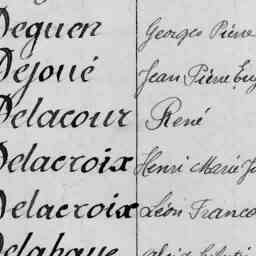 Deguen Georges Pierre
Dejoué Jean Pierre Eug
Delacour René
Delacroix Henri Marie Jo
Delacroix Léon Franco
Delahaye